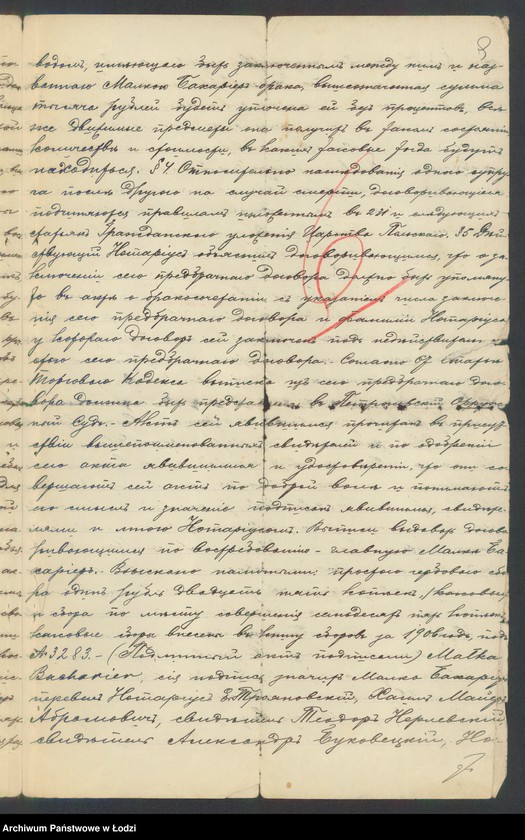 8
водомъ, имѣющаго быть заключеннымъ между нимъ и наз-
ванною Малкою Бахаріеръ брака, вышеозначенная сумма
тысяча рублей будетъ уплочена ей безъ процентовъ, всѣ
же движимые предметы она получитъ въ такомъ состояніи,
количествѣ и стоимости, въ какихъ таковые тогда будутъ
находиться. § 4 Относительно наслѣдованія одного супру-
га послѣ другого на случай смерти, договаривающіеся
подчиняются правиламъ изложеннымъ въ 231 и слѣдующихъ
статьяхъ Гражданскаго уложенія Царства Польскаго. § 5 Дѣй-
ствующій Нотаріусъ объяснилъ договаривающимся, что о за-
ключеніи сего предбрачнаго договора должно быть упомяну-
то въ актѣ о бракосочетаніи съ указаніемъ числа заключе-
нія сего предбрачнаго договора и фамиліи Нотаріуса
у котораго договоръ сей заключенъ подъ недѣйствитель-
стью сего предбрачнаго договора. Согласно 67 статьи
Торговаго Кодекса выписка изъ сего предбрачнаго дого-
вора должна быть представлена въ Петроковскій Окруж-
ный Судъ. - Актъ сей явившимся прочитанъ въ присут-
ствіи вышепоименованныхъ свидѣтелей и по одобреніи
сего акта явившимися и удостовѣреніи, что они со-
вершаютъ сей актъ по доброй волѣ и понимаютъ
его смыслъ и значеніе подписанъ явившимися, свидѣте-
лями и мною Нотаріусомъ. Выписи выдать догова-
ривающимся по востребованію - главную Малкѣ Ба-
харіеръ. Взыскано наличными: простого гербоваго сбо-
ра одинъ рубль двадцать пять копѣекъ,
и сбора по мѣсту совершенія семьдесятъ пять копѣекъ
каковые сборы внесены въ книгу сборовъ за 1906 годъ, подъ
№ 3283. - (Подлинный актъ подписали) Małka
Bacharier, сія подпись значитъ Малка Бахаріеръ
перевелъ Нотаріусъ Трояновскій, Хаимъ Майеръ
Абрамовичъ, свидѣтель Теодоръ Нерлевскій,
свидѣтель Александръ Буковецкій, Но-
Archiwum Państwowe w Łodzi